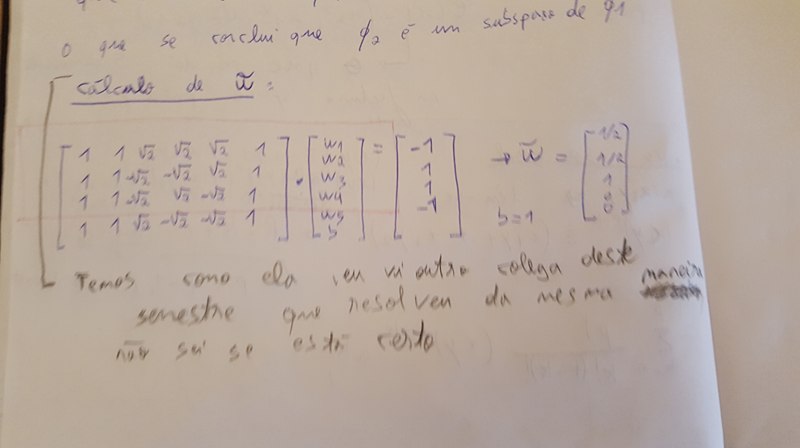 O que se conclui que φ2 é um subspaço de φ1
cálculo de w̃:
[1 1 √2 √2 √2 1] · [w1 w2 w3 w4 w5 b] = [-1 1 1 -1] → w̃ = [1/2 1/2 1 0 0]
1 1 -√2 -√2 √2 1
1 1 -√2 √2 -√2 1
1 1 √2 -√2 -√2 1
b=1
Temos como ela, eu vi outro colega deste
semestre que resolveu da mesma maneira
não sei se está certo